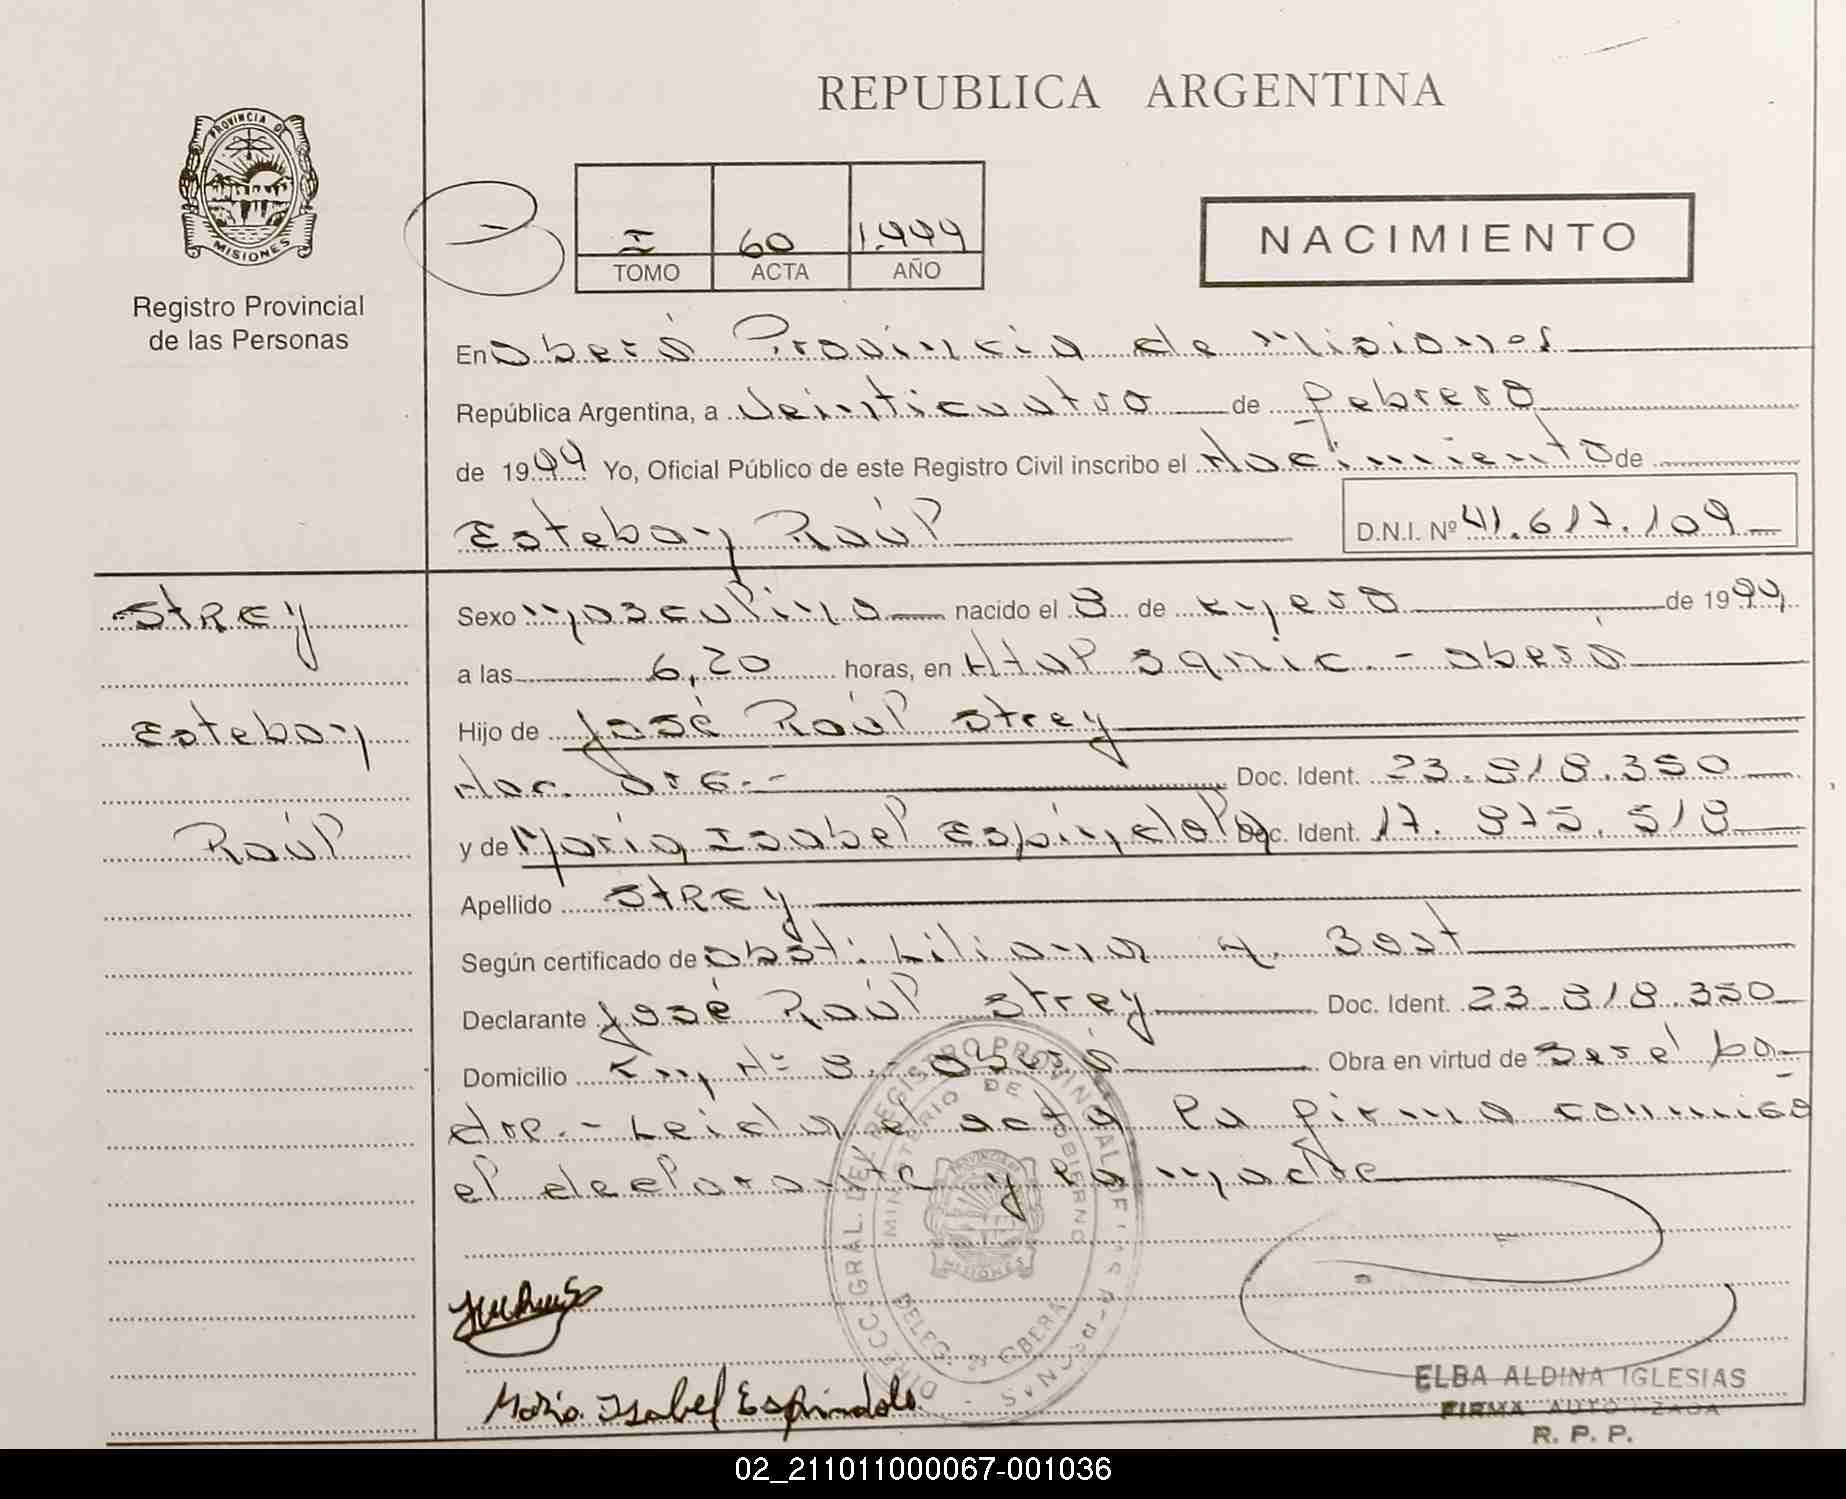 REPUBLICA ARGENTINA
PROVINCIA DE
MISIONES
Registro Provincial
de las Personas
I 60 1.999
TOMO ACTA AÑO
NACIMIENTO
En Oberá Provincia de Misiones
República Argentina, a veinticuatro de febrero
de 1999 Yo, Oficial Público de este Registro Civil inscribo el Nacimiento de
Esteban Raúl
D.N.I. Nº 41.617.109
STREY
Esteban
Raúl
Sexo masculino nacido el 8 de enero de 1999
a las 6,20 horas, en Htal Samic. - Oberá
Hijo de José Raúl Strey
Nac. Arg. - Doc. Ident. 23.818.350
y de María Isabel Espíndola Doc. Ident. 17.875.518
Apellido STREY
Según certificado de Obst. Liliana A. Bost
Declarante José Raúl Strey Doc. Ident. 23.818.350
Domicilio Km Nº 8 - Oberá Obra en virtud de ser el pa-
dre. - Leida el acta la firma conmigo
el declarante y la madre
DIRECC. GRAL. DEL REGISTRO PROVINCIAL DE LAS PERSONAS
MINISTERIO DE GOBIERNO
PROVINCIA DE
MISIONES
DELEG. OBERA
Maria Isabel Espindola
ELBA ALDINA IGLESIAS
FIRMA AUTORIZADA
R. P. P.
02_211011000067-001036